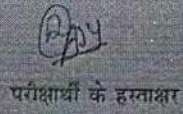 परीक्षार्थी के हस्ताक्षर